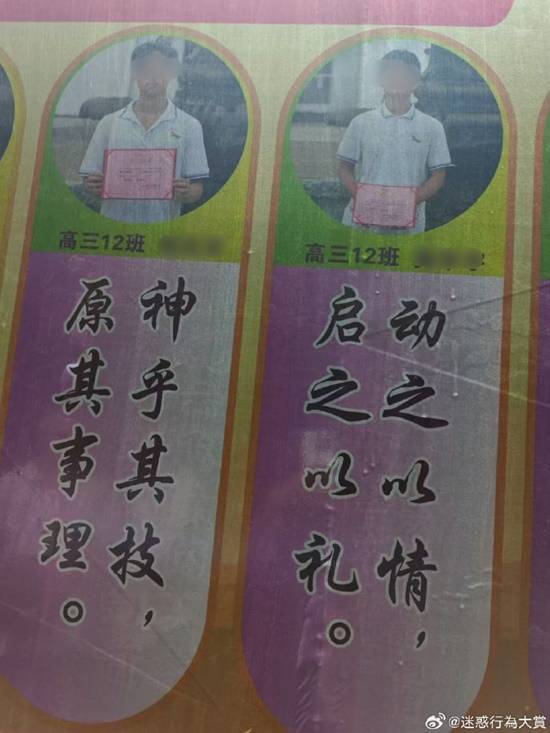 高三12班
神乎其技，
原其事理。
高三12班
动之以情，
启之以礼。
@迷惑行為大賞